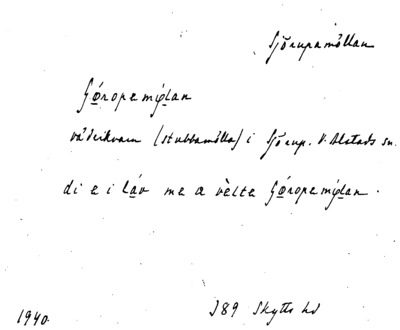 Sjörupamöllan
Sǿropemǿlan
väderkvarn (stubbamölla) i Sjörup. V. Alstads sn.
di e i láv me a vèlte Sǿropemǿlan.
1940. 389 Skytts hd